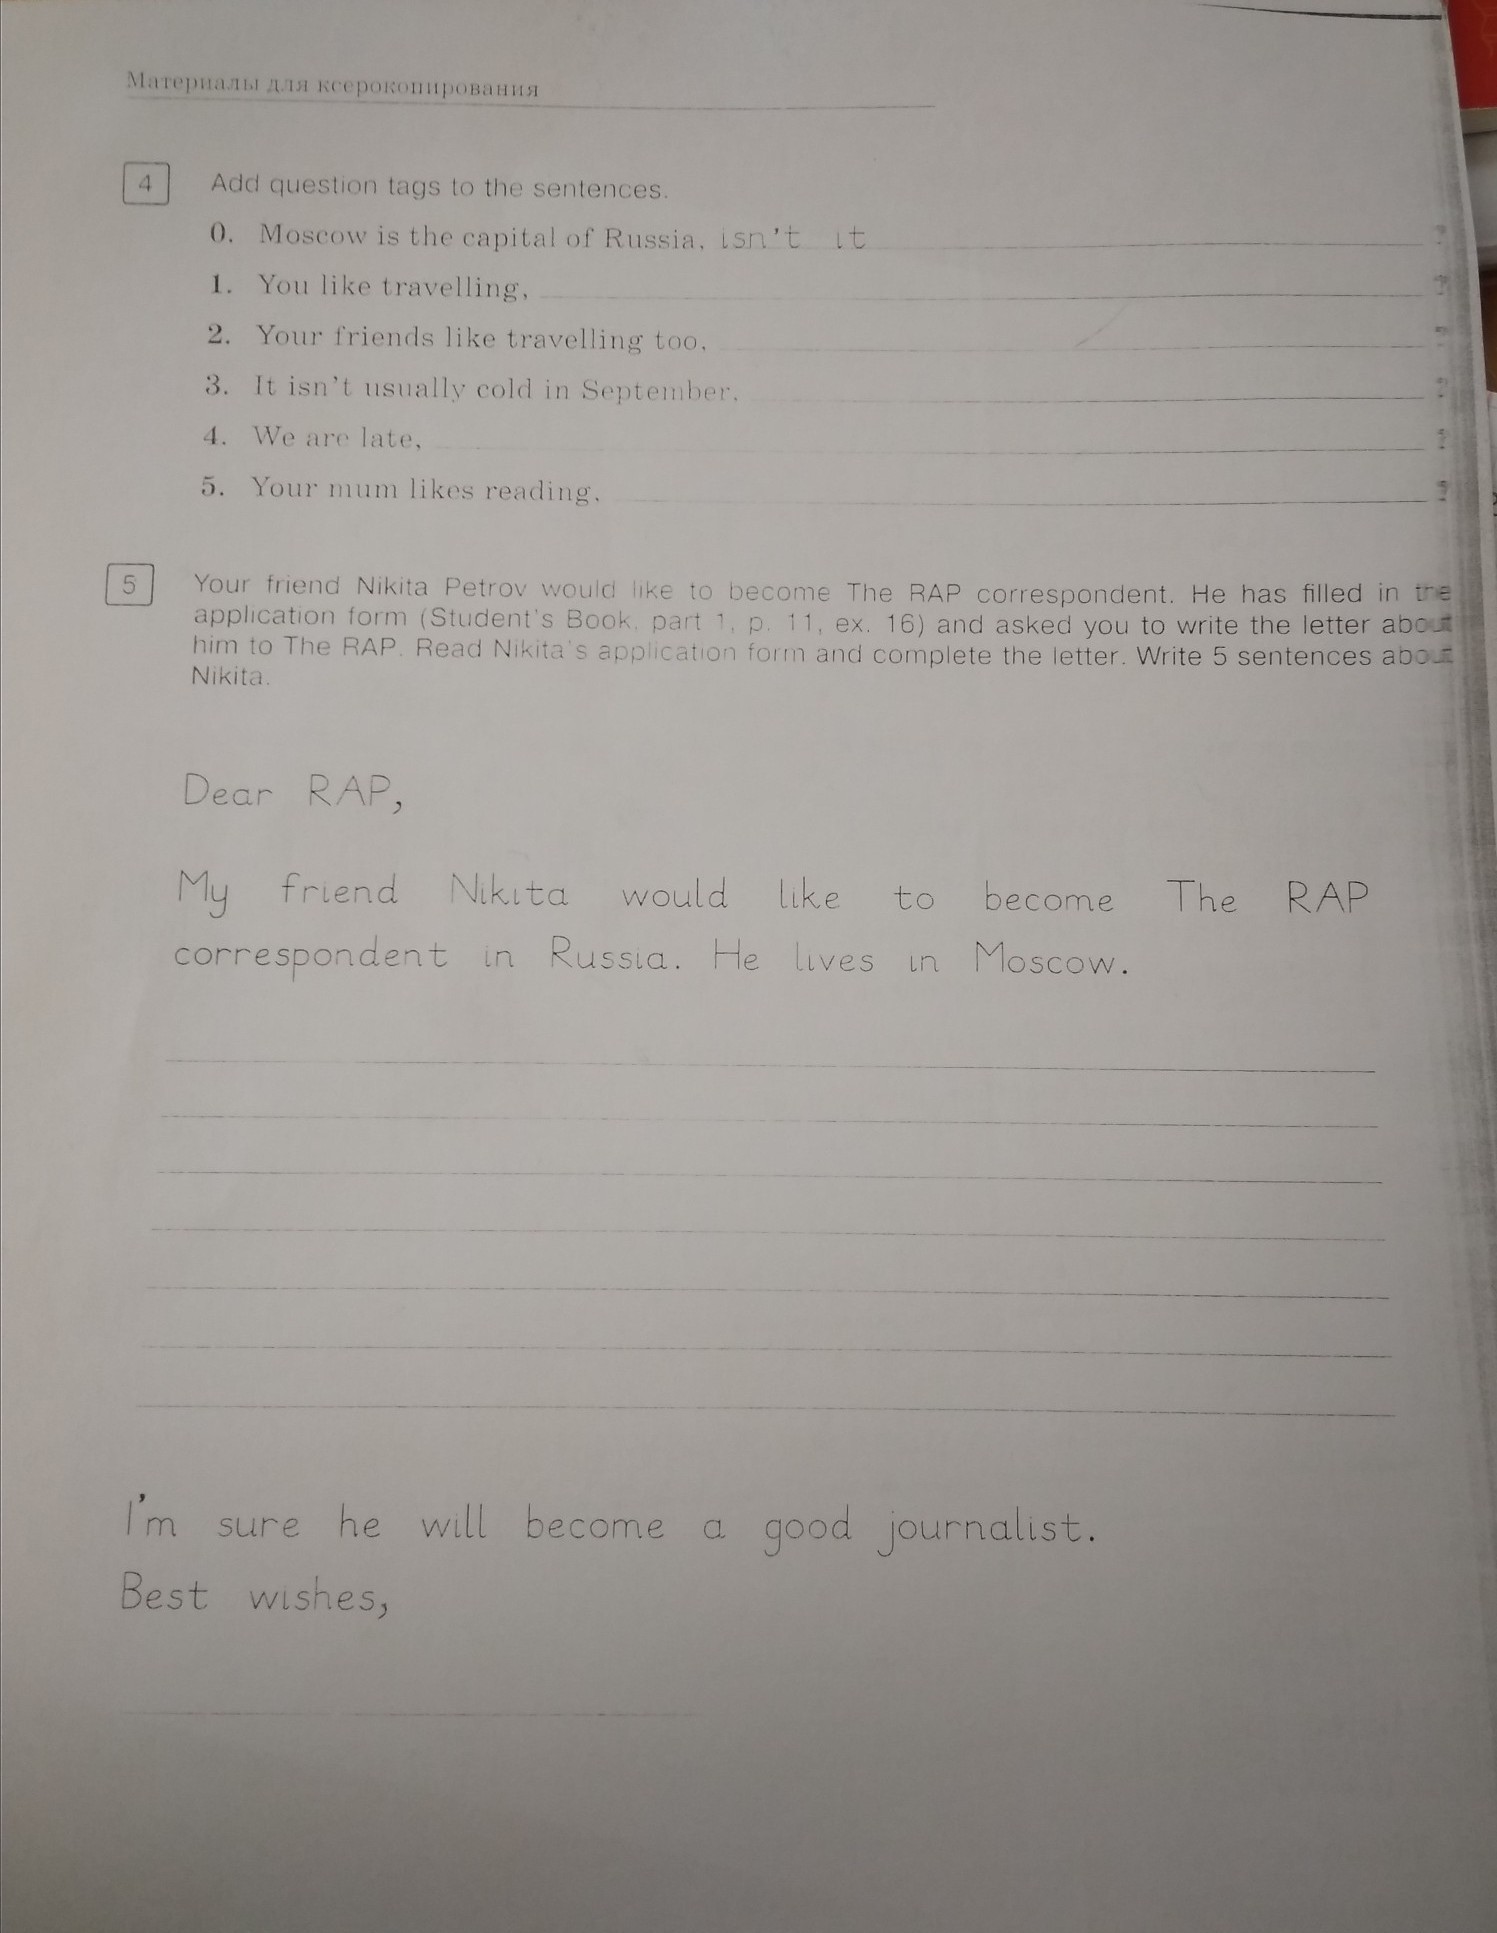 Материалы для ксерокопирования
4 Add question tags to the sentences.
0. Moscow is the capital of Russia, isn't it ?
1. You like travelling, ?
2. Your friends like travelling too, ?
3. It isn't usually cold in September, ?
4. We are late, ?
5. Your mum likes reading, ?
5 Your friend Nikita Petrov would like to become The RAP correspondent. He has filled in the
application form (Student's Book, part 1, p. 11, ex. 16) and asked you to write the letter about
him to The RAP. Read Nikita's application form and complete the letter. Write 5 sentences about
Nikita.
Dear RAP,
My friend Nikita would like to become The RAP
correspondent in Russia. He lives in Moscow.
I'm sure he will become a good journalist.
Best wishes,